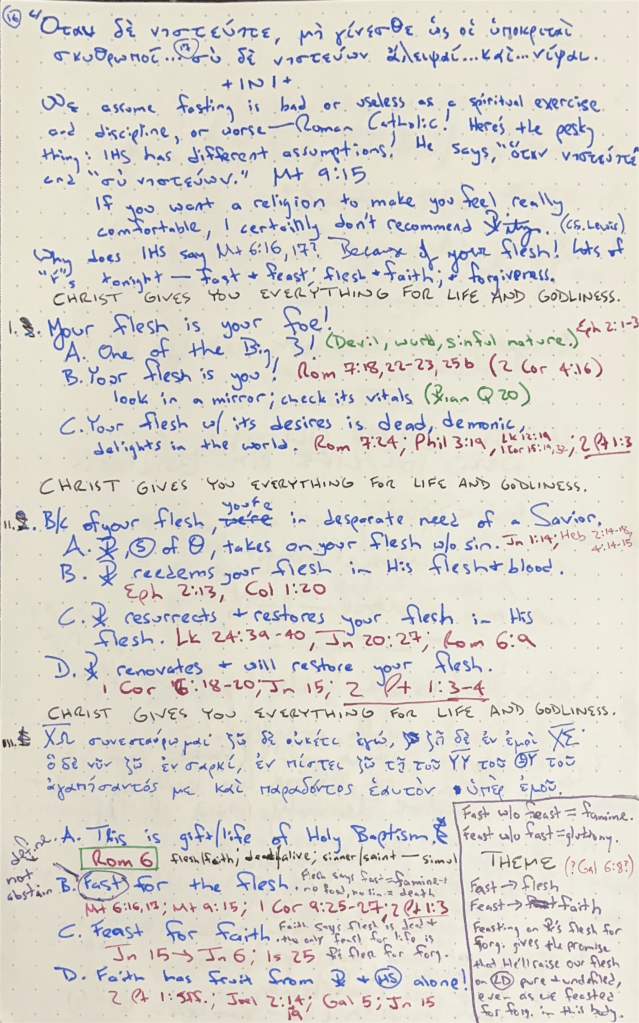 ⑯ "Ὅταν δὲ νηστεύητε, μὴ γίνεσθε ὡς οἱ ὑποκριταὶ
σκυθρωποί... ⑰ σὺ δὲ νηστεύων ἄλειψαί...καὶ...νίψαι.
+ INI +
We assume fasting is bad or useless as a spiritual exercise
and discipline, or worse—Roman Catholic! Here's the pesky
thing: IHS has different assumptions! He says, "ὅταν νηστεύητε"
and "σὺ νηστεύων." Mt 9:15
If you want a religion to make you feel really
comfortable, I certainly don't recommend Xity. (CS. Lewis)
Why does IHS say Mt 6:16,17? Because of your flesh! Lots of
"F"'s tonight — fast + feast; flesh + faith; + forgiveness.
CHRIST GIVES YOU EVERYTHING FOR LIFE AND GODLINESS.
I. Your flesh is your foe!
A. One of the Big 3! (Devil, world, sinful nature.) Eph 2:1-3
B. Your flesh is you! Rom 7:18,22-23,25b (2 Cor 4:16)
look in a mirror; check its vitals (Xian Q 20)
C. Your flesh w/ its desires is dead, demonic,
delights in the world. Rom 7:24; Phil 3:19, Lk 12:19, 1 Cor 15:19,32; 2 Pt 1:3
CHRIST GIVES YOU EVERYTHING FOR LIFE AND GODLINESS.
II. B/c of your flesh, you're in desperate need of a Savior.
A. ☧, Ⓢ of Θ, takes on your flesh w/o sin. Jn 1:14; Heb 2:14-18, 4:14-15
B. ☧ redeems your flesh in His flesh + blood.
Eph 2:13, Col 1:20
C. ☧ resurrects + restores your flesh in His
flesh. Lk 24:39-40, Jn 20:27; Rom 6:9
D. ☧ renovates + will restore your flesh.
1 Cor 6:18-20; Jn 15; 2 Pt 1:3-4
CHRIST GIVES YOU EVERYTHING FOR LIFE AND GODLINESS.
III. ΧΩ συνεσταύρωμαι· ζῶ δὲ οὐκέτι ἐγώ, ζῇ δὲ ἐν ἐμοὶ ΧΣ·
ὃ δὲ νῦν ζῶ ἐν σαρκί, ἐν πίστει ζῶ τῇ τοῦ ΥΥ τοῦ ΘΥ τοῦ
ἀγαπήσαντός με καὶ παραδόντος ἑαυτὸν ὑπὲρ ἐμοῦ.
A. This is gift/life of Holy Baptism.
Rom 6 flesh/faith; dead/alive; sinner/saint — simul
define not abstain
B. Fast for the flesh. Flesh says fast = famine + no food, no line = death
Mt 6:16,17; Mt 9:15; 1 Cor 9:25-27; 2 Pt 1:3
C. Feast for faith. Faith says flesh is dead + the only feast for life is
Jn 15 → Jn 6; Is 25 ☧'s flesh for forg.
D. Faith has fruit from ☧ + HS alone!
2 Pt 1:5ff.; Joel 2:14, 19; Gal 5; Jn 15
Fast w/o feast = famine.
Feast w/o fast = gluttony.
THEME (?Gal 6:8?)
Fast → flesh
Feast → faith
Feasting on ☧'s flesh for
forg. gives the promise
that He'll raise our flesh
on LD pure + undefiled,
even as we feasted
for forg. in this body.